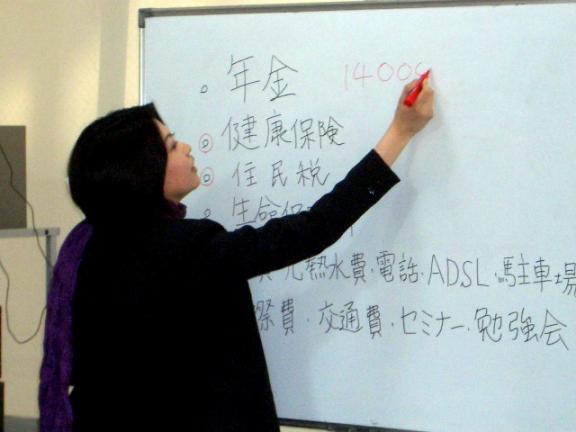 。年金 14000
◎健康保険
◎住民税
。生命保
光熱水費・電話・ADSL・駐車場
際費・交通費・セミナー・勉強会